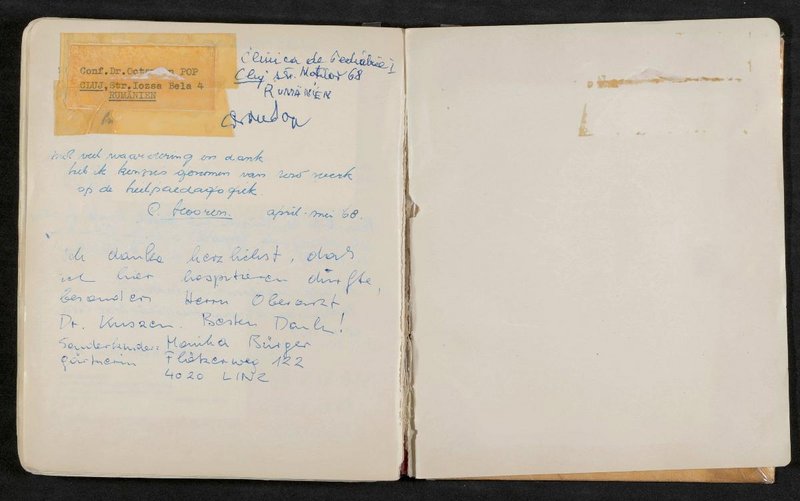 Conf.Dr.Octavian POP
CLUJ, Str.Iozsa Bela 4
RUMÄNIEN
Clinica de Pediatrie I
Cluj str. 68
RUMÄNIEN
met veel waardering en dank
heb ik kennis genomen van uw werk
op de heilpaedagogiek.
april-mei 68.
Ich danke herzlichst, daß
ich hier hospitieren durfte,
besonders Herrn Oberarzt
Dr. Kuszen. Besten Dank!
Sonderkinder- Monika Bürger
gärtnerin Flötzerweg 122
4020 LINZ